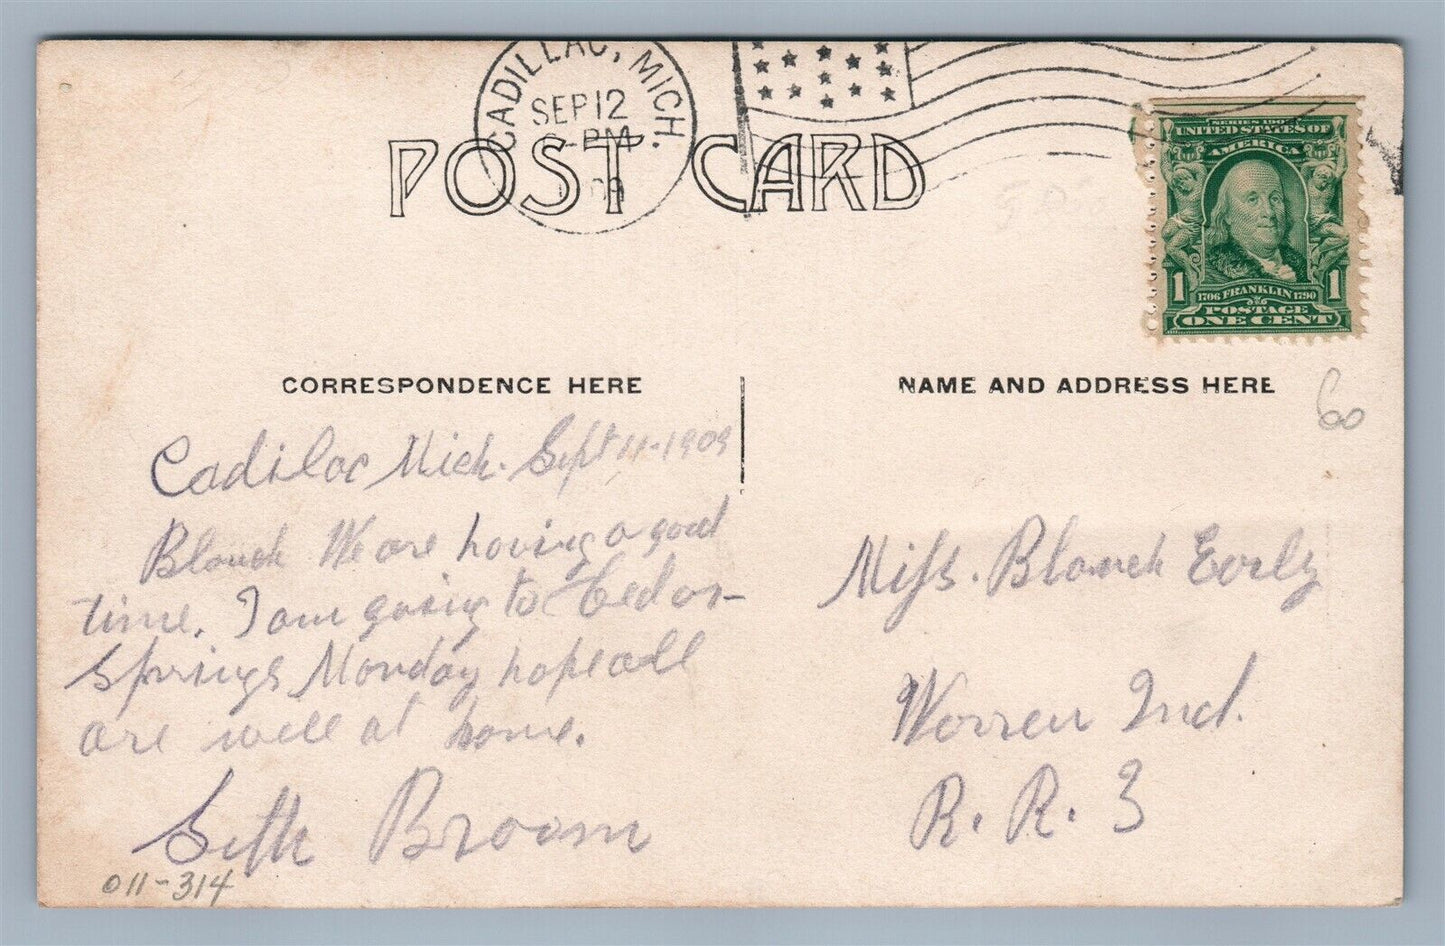 CADILLAC, MICH.
SEP 12
PM
09
POST CARD
SERIES 1902
UNITED STATES OF
AMERICA
1 1706 FRANKLIN 1790 1
POSTAGE
ONE CENT
CORRESPONDENCE HERE
NAME AND ADDRESS HERE
60
Cadilac Mich. Sept 11-1909
Blanch We are having a good
time. I am going to Cedar-
Springs Monday hope all
are well at home.
Seth Broom
011-314
Miss. Blanch Early
Warren Ind.
R. R. 3